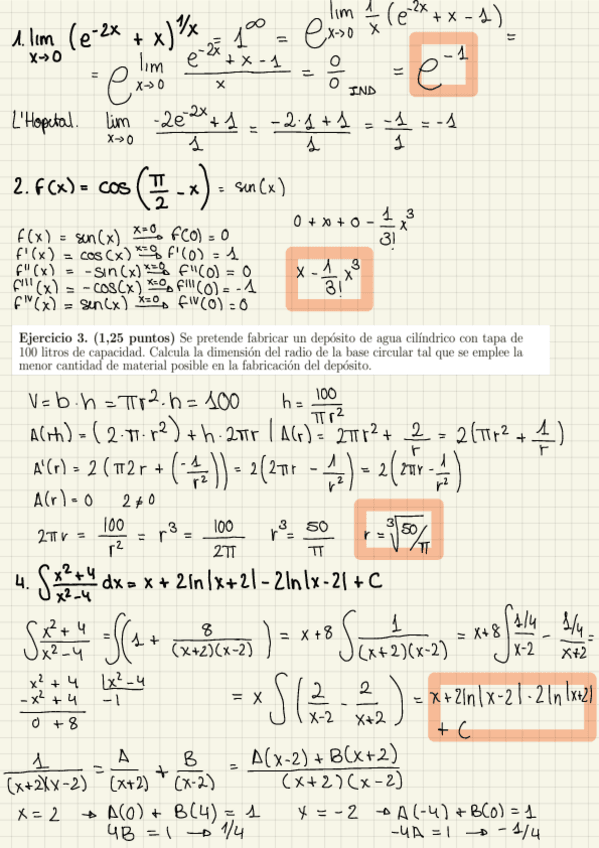 1. lim x→0 (e^-2x + x)^1/x = 1^∞ = e^lim x→0 1/x (e^-2x + x - 1) =
= e^lim x→0 (e^-2x + x - 1)/x = 0/0 IND = e^-1
L'Hopctal. lim x→0 (-2e^-2x + 1)/1 = (-2·1 + 1)/1 = -1/1 = -1
2. f(x) = cos (π/2 - x) = sin(x)
0 + x + 0 - 1/3! x^3
x - 1/3! x^3
f(x) = sin(x) x=0→ f(0) = 0
f'(x) = cos(x) x=0→ f'(0) = 1
f''(x) = -sin(x) x=0→ f''(0) = 0
f'''(x) = -cos(x) x=0→ f'''(0) = -1
f^IV(x) = sen(x) x=0→ f^IV(0) = 0
Ejercicio 3. (1,25 puntos) Se pretende fabricar un depósito de agua cilíndrico con tapa de
100 litros de capacidad. Calcula la dimensión del radio de la base circular tal que se emplee la
menor cantidad de material posible en la fabricación del depósito.
V = b·h = πr²·h = 100 h = 100/πr²
A(r+h) = (2·π·r²) + h·2πr | A(r) = 2πr² + 2/r = 2(πr² + 1/r)
A'(r) = 2(π2r + (-1/r²)) = 2(2πr - 1/r²) = 2(2πr - 1/r²)
A(r) = 0 2 ≠ 0
2πr = 100/r² = r³ = 100/2π r³ = 50/π r = ³√50/π
4. ∫ (x²+4)/(x²-4) dx = x + 2ln|x+2| - 2ln|x-2| + C
∫ (x²+4)/(x²-4) = ∫(1 + 8/((x+2)(x-2))) = x + 8 ∫ 1/((x+2)(x-2)) = x+8 ∫ (1/4)/(x-2) - (1/4)/(x+2) =
x² + 4 |x² - 4
-x² + 4 -1
0 + 8
= x ∫ (2/(x-2) - 2/(x+2)) = x + 2ln|x-2| - 2ln|x+2|
+ C
1/((x+2)(x-2)) = A/(x+2) + B/(x-2) = (A(x-2) + B(x+2))/((x+2)(x-2))
x = 2 → A(0) + B(4) = 1 x = -2 → A(-4) + B(0) = 1
4B = 1 → 1/4 -4A = 1 → -1/4